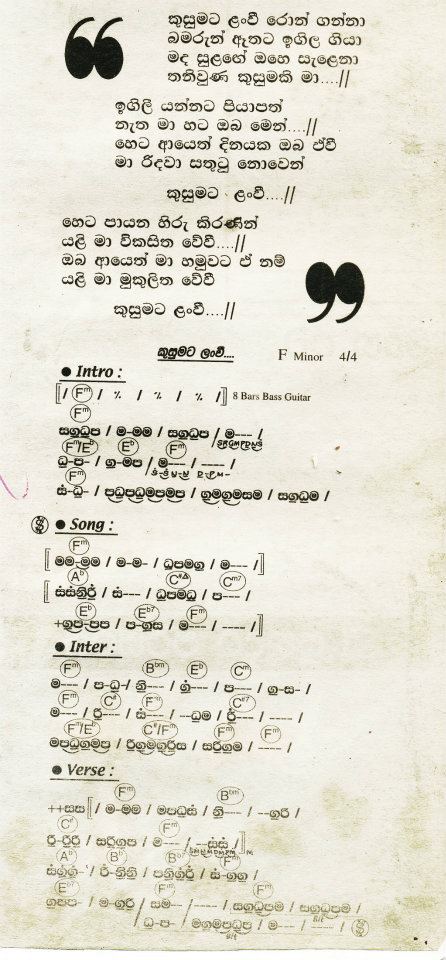 කුසුමට ළංවී රොන් ගන්නා
බමරුන් ඈතට ඉගිල ගියා
මද සුළඟේ ඔහෙ සැළෙනා
තනිවුණ කුසුමකි මා....//
ඉගිලී යන්නට පියාපත්
නැත මා හට ඔබ මෙන්....//
හෙට ආයෙත් දිනයක ඔබ ඒවී
මා රිදවා සතුටු නොවෙන්
කුසුමට ළංවී....//
හෙට පායන හිරු කිරණින්
යළි මා විකසිත වේවී....//
ඔබ ආයෙත් මා හමුවට ඒ නම්
යළි මා මුකුලිත වේවී
කුසුමට ළංවී....//
කුසුමට ලංවී.... F Minor 4/4
● Intro :
[/ Fm / ٪ / ٪ / ٪ /] 8 Bars Bass Guitar
Fm
සගුධුප / ම-මම / සගුධුප / ම--- /
Fm/Eb Eb Fm
ධු-ප- / ගු-මප / ම--- / ---- /
Fm
ස්-ධු- / පධුපධුමපමප / ගුමගුමගුසම / සගුධුම /
● Song :
Fm
[ මම-මම / ම-ම- / ධුපමගු / ම--- /]
Ab Cm7
ස්--- / ධුපමධු / ප--- /
Eb Eb7 Fm
+ගුප-පප / ප-ගුස / ම--- / ---- /]
● Inter :
Fm Bbm Eb Cm
ම--- / ප-ධු- / ප--- / ගු-ස- /
Fm C# Fm C#7
ම--- / --ධුම / ---- /
Fm/Eb C#/Fm Fm Fm
මපධුගුමප / සරිගුම / ---- /
● Verse :
Fm Bbm
++සස [/ ම-මම / මපධුස් / --ගුරි /
C# Fm
සරිගුප / ම--- / --ස්ස් /]
Ab Bb Fm
Eb7 Fm Fm
ගුපප- / ම-ගුරි / සම-- / ---- / සගුධුපම / සගුධුපම /
/ ධු-ප- / මගුමපධුප / ම--- / ---- /